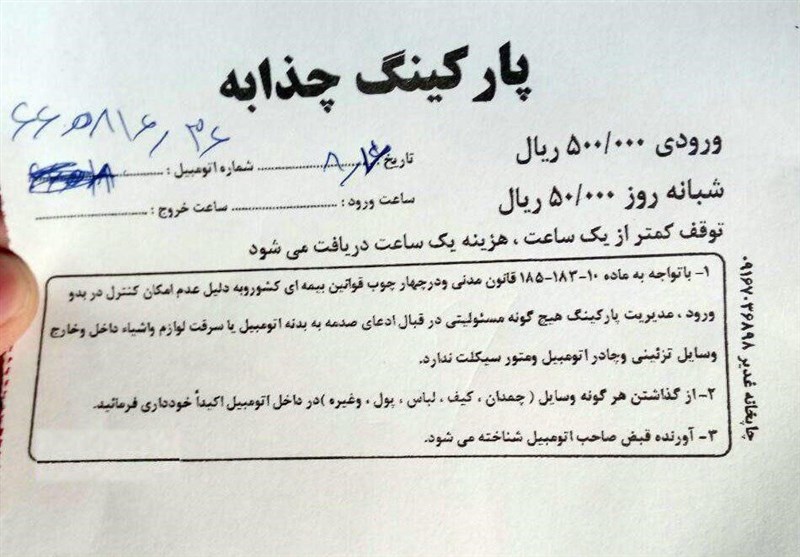 پارکینگ چذابه
ورودی ۵۰۰/۰۰۰ ریال
شبانه روز ۵۰/۰۰۰ ریال
تاریخ ............ شماره اتومبیل : ............
ساعت ورود : ............ ساعت خروج : ............
توقف کمتر از یک ساعت ، هزینه یک ساعت دریافت می شود
۱- باتواجه به ماده ۱۰-۱۸۳-۱۸۵ قانون مدنی ودرچهار چوب قوانین بیمه ای کشوروبه دلیل عدم امکان کنترل در بدو
ورود ، مدیریت پارکینگ هیچ گونه مسئولیتی در قبال ادعای صدمه به بدنه اتومبیل یا سرقت لوازم واشیاء داخل وخارج
وسایل تزئینی وچادر اتومبیل ومتور سیکلت ندارد.
۲- از گذاشتن هر گونه وسایل ( چمدان ، کیف ، لباس ، پول ، وغیره )در داخل اتومبیل اکیداً خودداری فرمائید.
۳- آورنده قبض صاحب اتومبیل شناخته می شود.
چاپخانه غدیر ۰۹۱۶۷۰۲۶۸۹۸